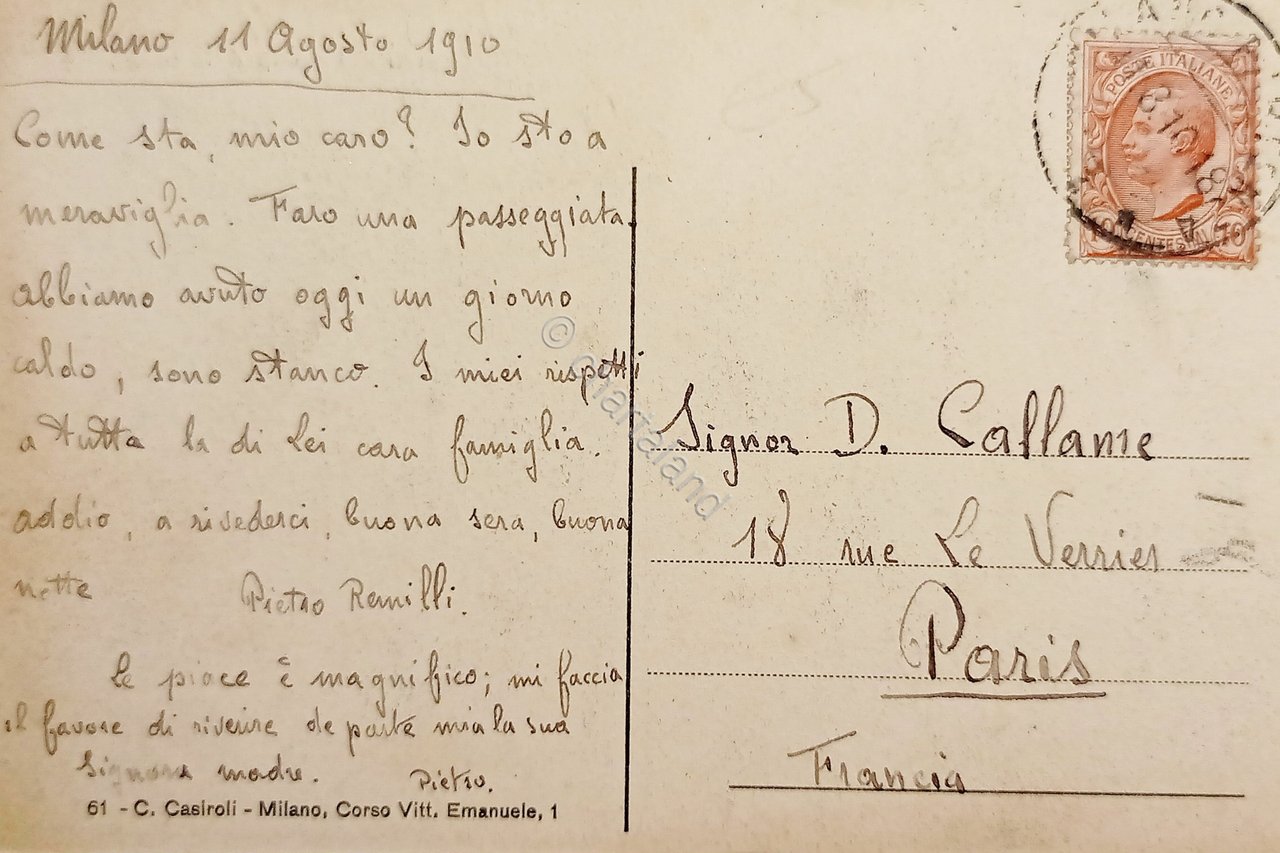 Milano 11 Agosto 1910
Come sta, mio caro? Io sto a
meraviglia. Faro una passeggiata.
abbiamo avuto oggi un giorno
caldo, sono stanco. I miei rispetti
a tutta la di Lei cara famiglia.
addio, a rivederci, buona sera, buona
notte Pietro Remilli.
Le piace è magnifico; mi faccia
il favore di riverire de parte mia la sua
Signora madre. Pietro.
61 - C. Casiroli - Milano, Corso Vitt. Emanuele, 1
POSTE ITALIANE
8.10 18
10 CENTESIMI 10
Signor D. Callame
18 rue Le Verrier
Paris
Francia
© chartaland